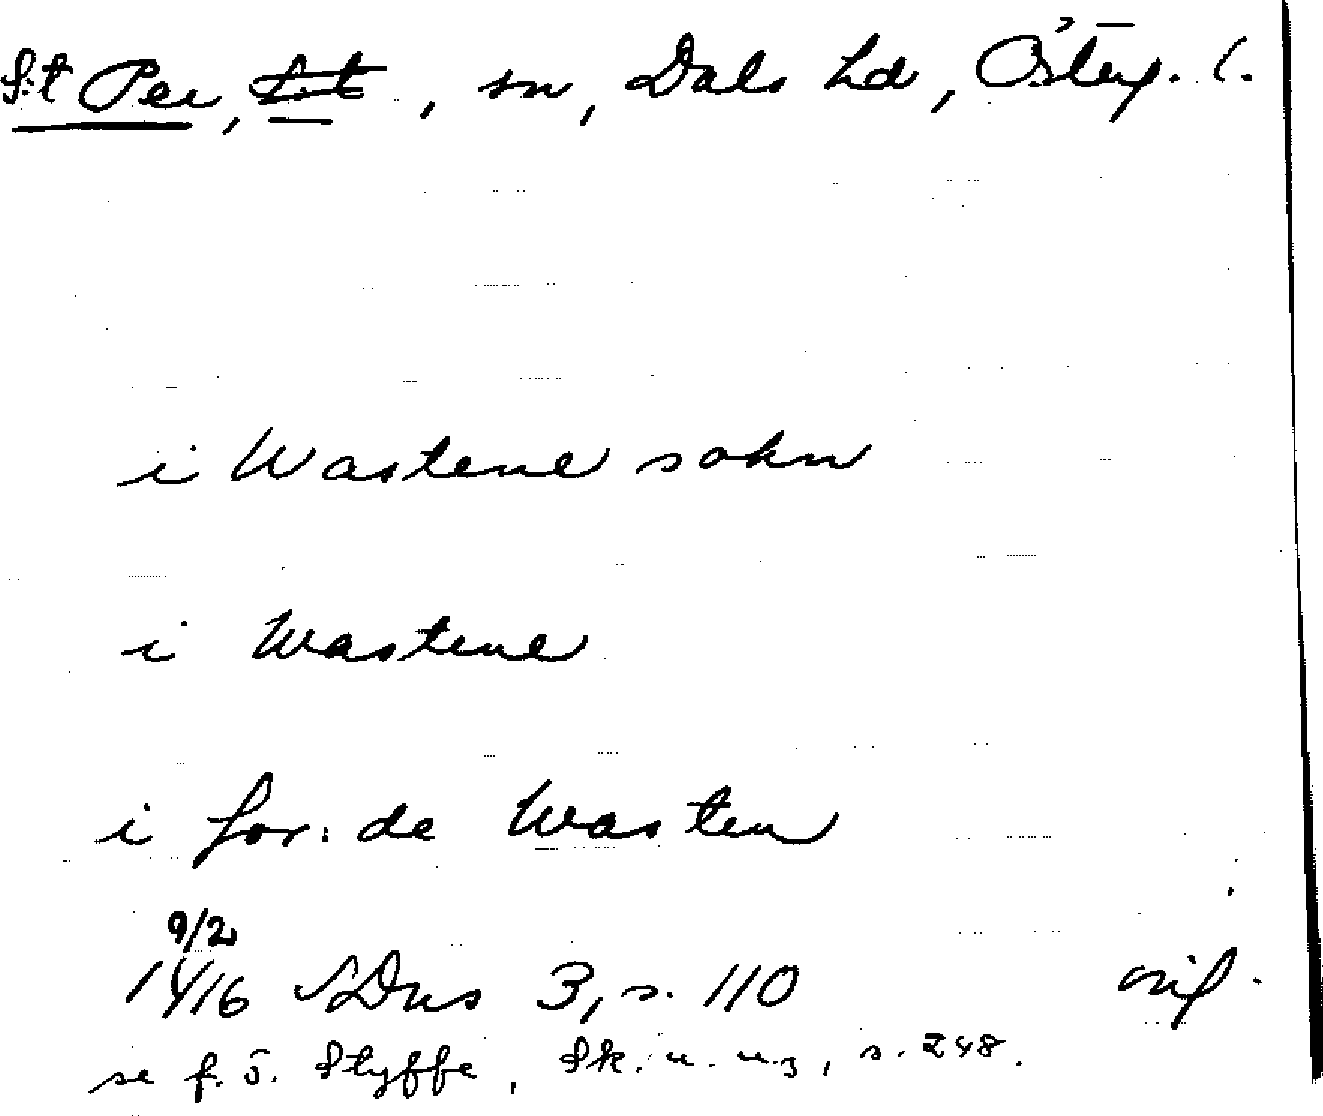 S:t Per, S:t, sn, Dals hd, Österg. l.
i Wastene sokn
i Wastene
i for: de Wasten
9/2
1416 SDns 3, s. 110 orig.
se f. ö. Styffe, Sk. u. u. 3, s. 248.